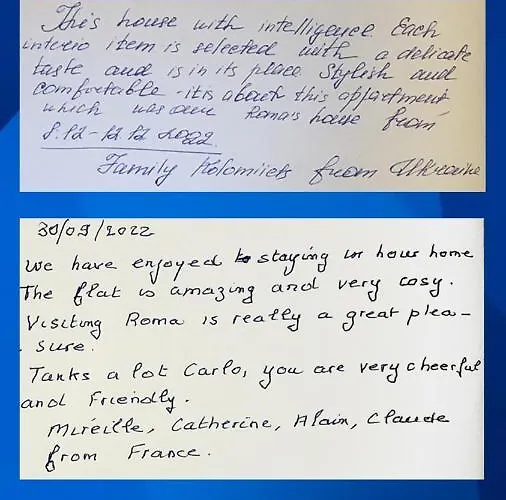 This house with intelligence Each
interio item is selected with a delicate
taste and is in its place. Stylish and
comfortable - it is about this appartment
which was our Roma's house from
8.12-12.12 2022.
Family Kolomiiets from Ukraine
30/09/2022
We have enjoyed to staying in hour home
The flat is amazing and very cosy.
Visiting Roma is really a great plea-
sure.
Tanks a lot Carlo, you are very cheerful
and Friendly.
Mireille, Catherine, Alain, Claude
from France.